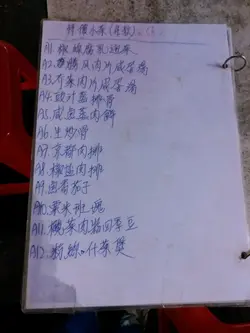 特價小菜(每款)
A1. 椒絲腐乳通菜
A2. 瓜肉片咸蛋湯
A3. 芥菜肉片咸蛋湯
A4. 豉汁蒸排骨
A5. 咸魚蒸肉餅
A6. 生炒骨
A7. 京都肉排
A8. 椒鹽肉排
A9. 魚香茄子
A10. 粟米斑塊
A11. 欖菜肉崧四季豆
A12. 粉絲什菜煲